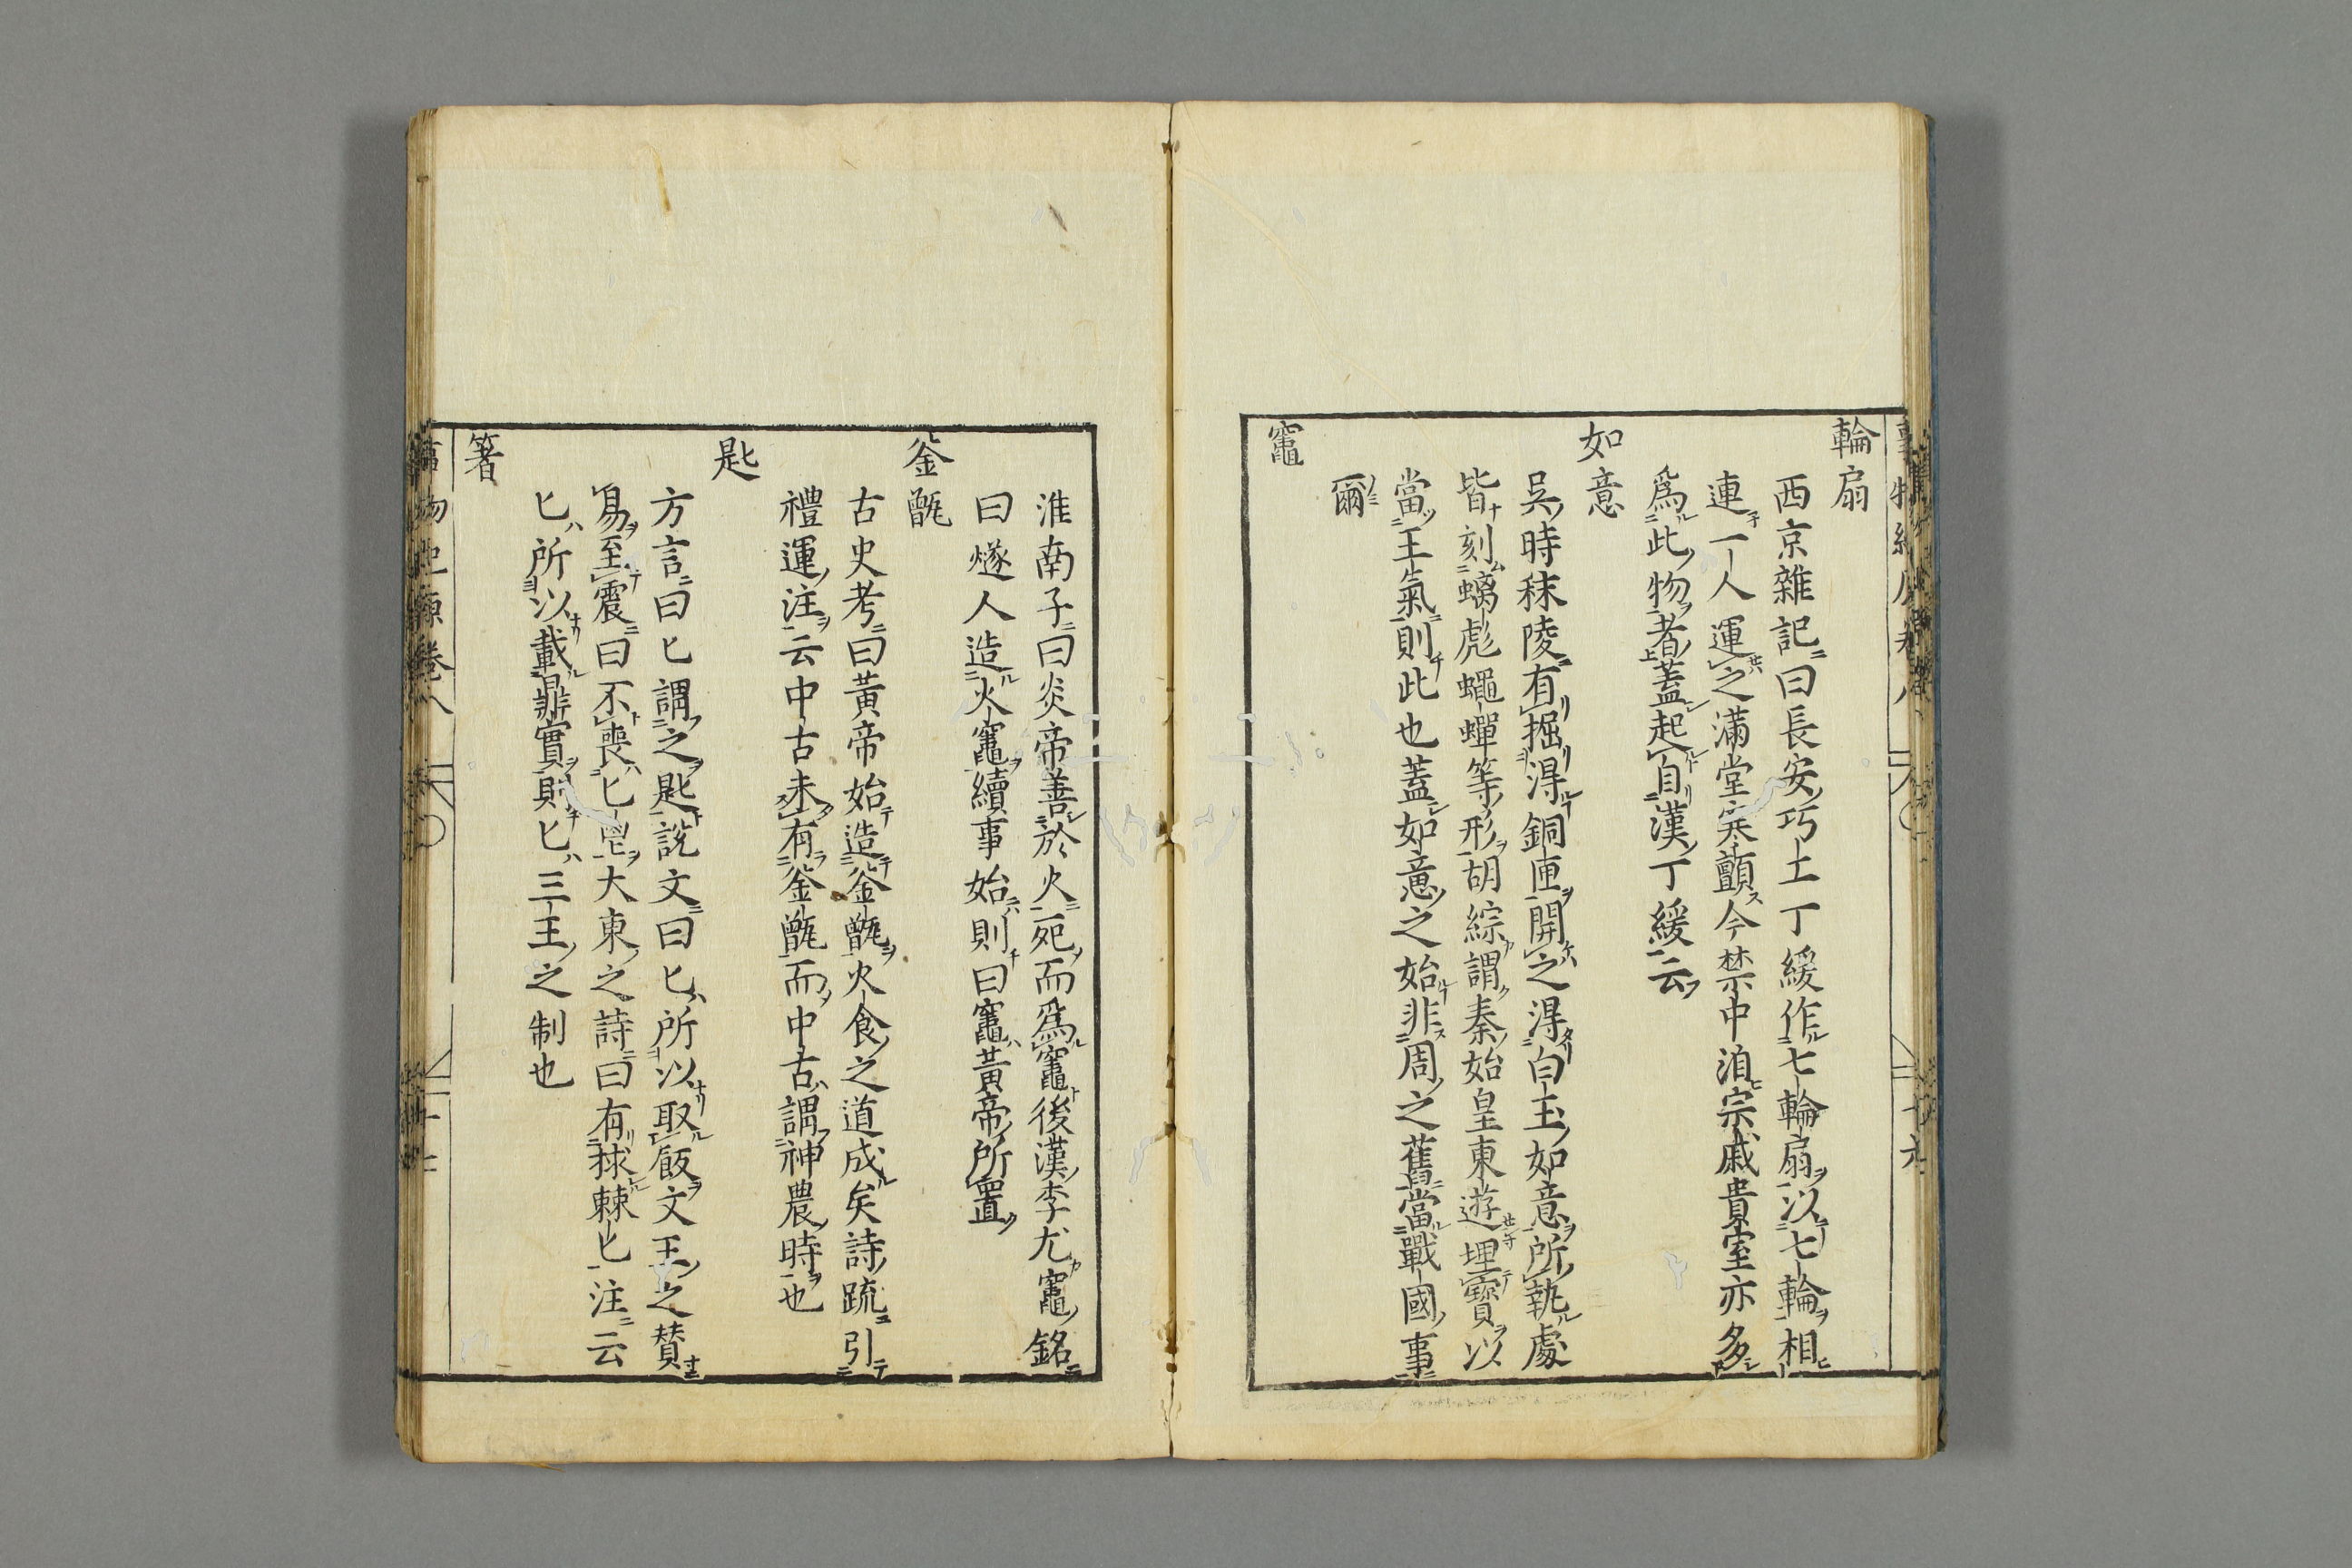 輪扇
西京雜記曰長安巧土丁緩作七輪扇以七輪相
連一人運之滿堂寒顫今禁中洎宗戚貴室亦多
爲此物者蓋起自漢丁緩云
如意
吳時秣陵有掘得銅匣開之得白玉如意所執處
皆刻螭彪蠅蟬等形胡綜謂秦始皇東遊埋寶以
當王氣則此也蓋如意之始非周之舊當戰國事
爾
竈
淮南子曰炎帝善於火死而爲竈後漢李尤竈銘
曰燧人造火竈續事始則曰竈黃帝所置
釜甑
古史考曰黃帝始造釜甑火食之道成矣詩疏引
禮運注云中古未有釜甑而中古謂神農時也
匙
方言曰匕謂之匙說文曰匕所以取飯文王之贊
易至震曰不喪匕鬯大東之詩曰有捄棘匕注云
匕所以載鼎實則匕三王之制也
箸